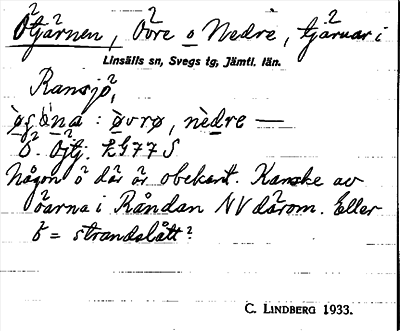 Ötjärnen, Övre o Nedre, tjärnar i
Linsälls sn, Svegs tg, Jämtl. län.
Ransjö,
: øvrø, nèdre —
Ö. Öjtj. LG77S
Någon ö där är obekant. Kanske av
öarna i Råndan NV därom. Eller
ö = strandslått?
C. LINDBERG 1933.